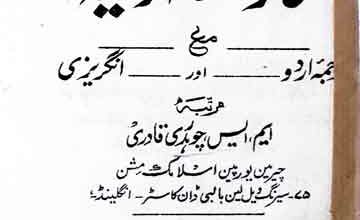 مع
اردو ــــــ اور ــــــ انگریزی
مرتبہ
ایم، ایس، چوہدری قادری
چیرمین یورپین اسلامک مشن
۷۵- سپرنگ ویل لین بالبی ڈان کاسٹر - انگلینڈ